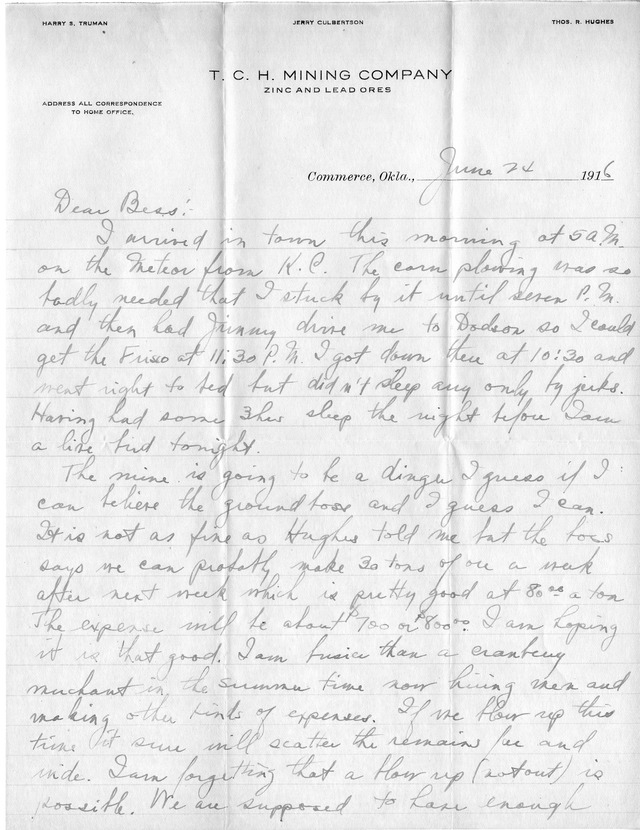 HARRY S. TRUMAN JERRY CULBERTSON THOS. R. HUGHES
T. C. H. MINING COMPANY
ZINC AND LEAD ORES
ADDRESS ALL CORRESPONDENCE
TO HOME OFFICE.
Commerce, Okla., June 24 1916
Dear Bess:-
I arrived in town this morning at 5 A.M.
on the Meteor from K.C. The corn plowing was so
badly needed that I stuck by it until seven P.M.
and then had Jimmy drive me to Dodson so I could
get the Frisco at 11:30 P.M. I got down there at 10:30 and
went right to bed but didn't sleep any only by jerks.
Having had some 3 hrs sleep the night before I am
a live bird tonight.
The mine is going to be a dinger I guess if I
can believe the ground boss and I guess I can.
It is not as fine as Hughes told me but the boss
says we can probably make 30 tons of ore a week
after next week which is pretty good at 80 00 a ton
The expense will be about $700 or $800 00. I am hoping
it is that good. I am busier than a cranberry
merchant in the summer time now hiring men and
making other kinds of expenses. If we blow up this
time it sure will scatter the remains far and
wide. I am forgetting that a blow up (not out) is
possible. We are supposed to have enough